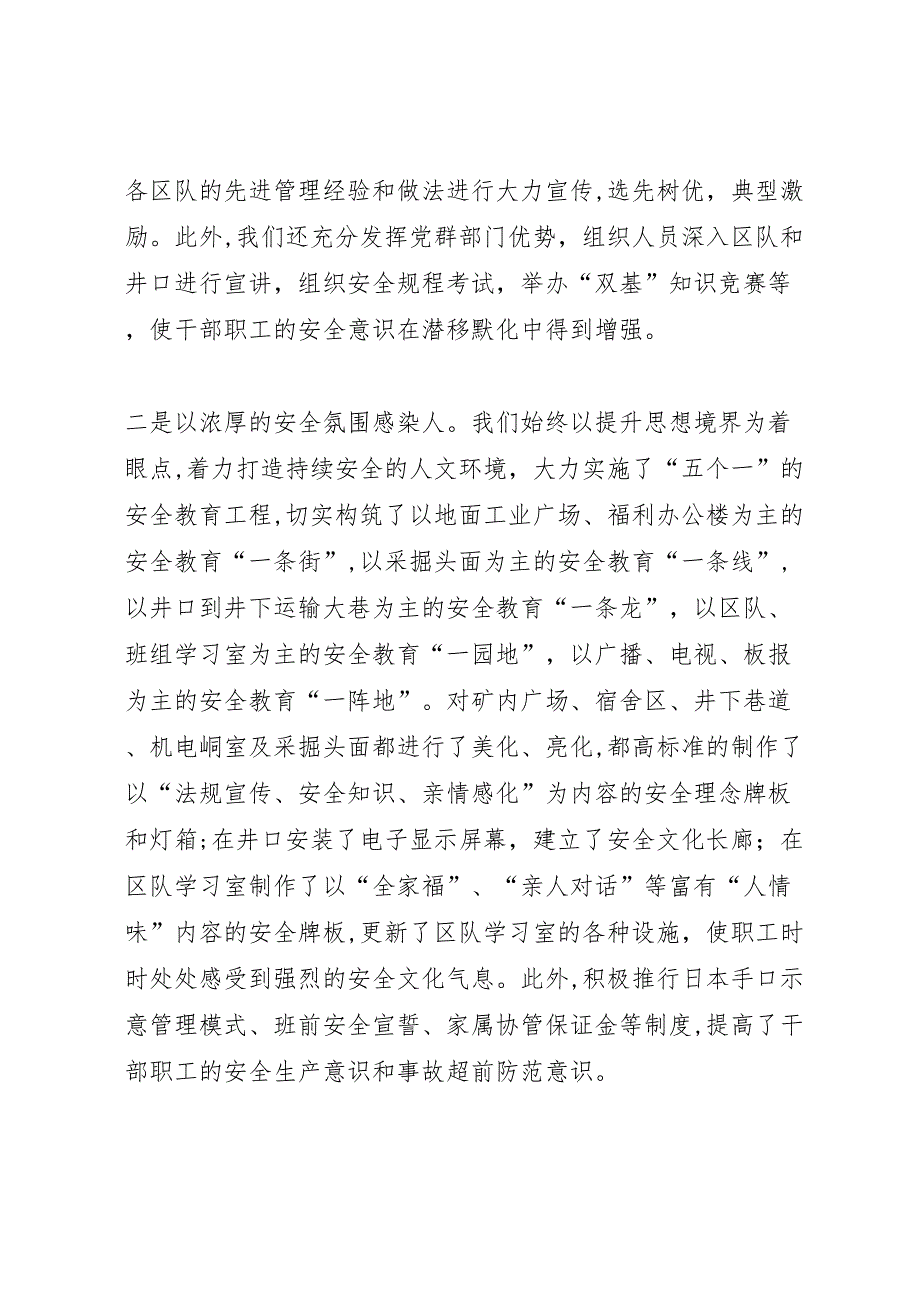 各区队的先进管理经验和做法进行大力宣传,选先树优，典型激
励。此外,我们还充分发挥党群部门优势，组织人员深入区队和
井口进行宣讲，组织安全规程考试，举办“双基”知识竞赛等
，使干部职工的安全意识在潜移默化中得到增强。
二是以浓厚的安全氛围感染人。我们始终以提升思想境界为着
眼点,着力打造持续安全的人文环境，大力实施了“五个一”的
安全教育工程,切实构筑了以地面工业广场、福利办公楼为主的
安全教育“一条街”,以采掘头面为主的安全教育“一条线”,
以井口到井下运输大巷为主的安全教育“一条龙”，以区队、
班组学习室为主的安全教育“一园地”，以广播、电视、板报
为主的安全教育“一阵地”。对矿内广场、宿舍区、井下巷道
、机电峒室及采掘头面都进行了美化、亮化,都高标准的制作了
以“法规宣传、安全知识、亲情感化”为内容的安全理念牌板
和灯箱;在井口安装了电子显示屏幕，建立了安全文化长廊；在
区队学习室制作了以“全家福”、“亲人对话”等富有“人情
味”内容的安全牌板,更新了区队学习室的各种设施，使职工时
时处处感受到强烈的安全文化气息。此外,积极推行日本手口示
意管理模式、班前安全宣誓、家属协管保证金等制度,提高了干
部职工的安全生产意识和事故超前防范意识。